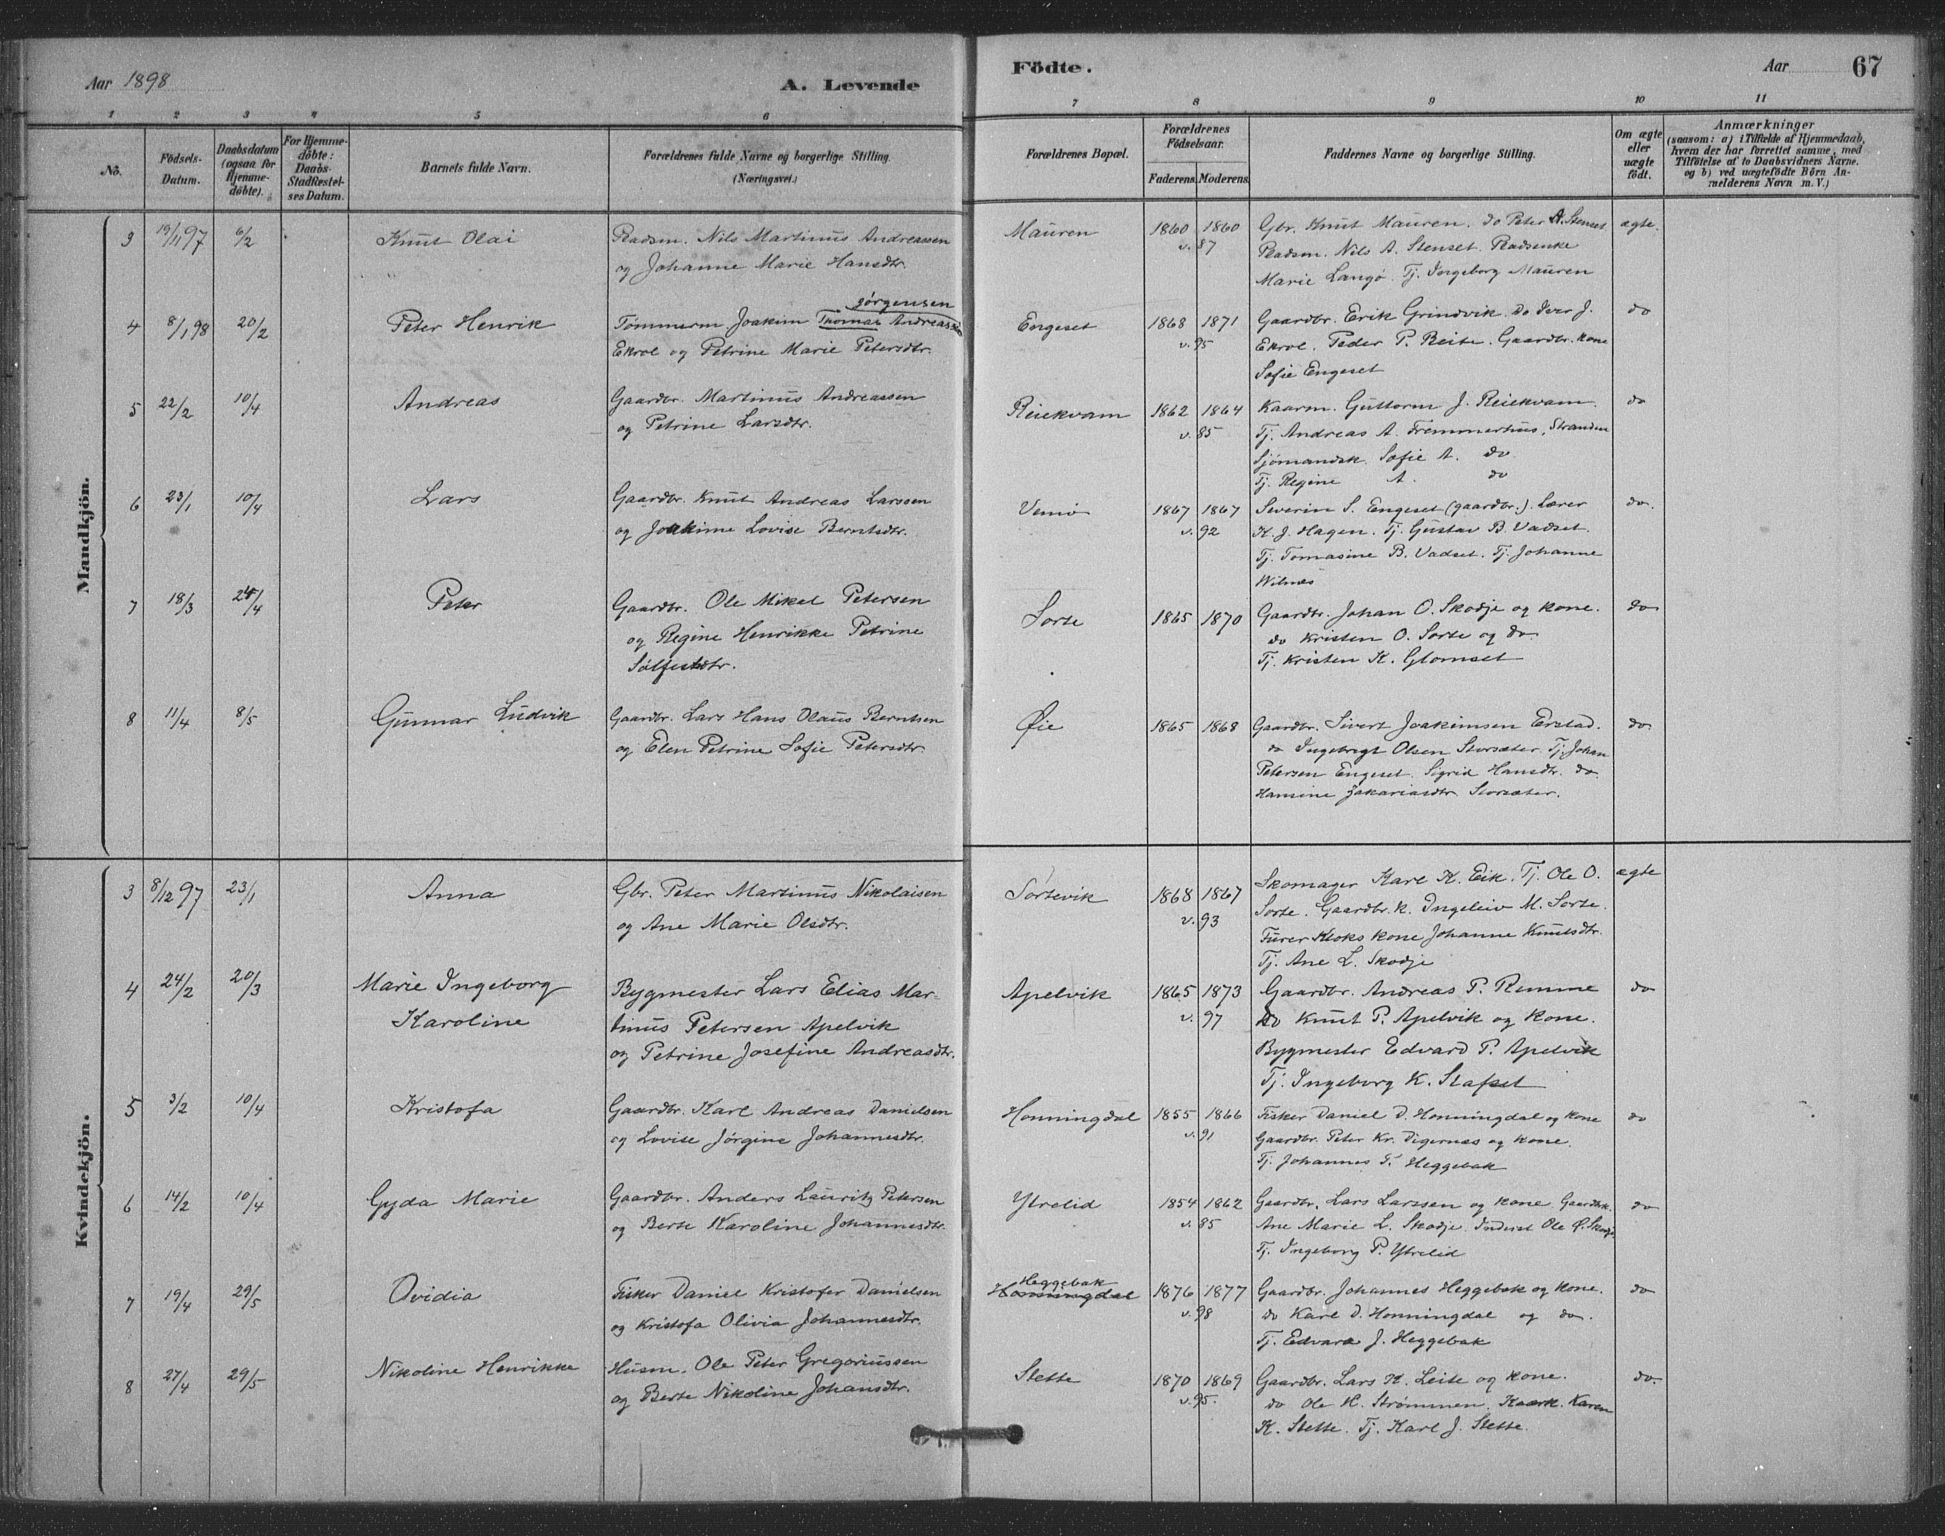 Aar 1898 A. Levende Födte. Aar 67
1 2 3 4 5 6 7 8 9 10 11
No.
Födsels-Datum.
Daabsdatum (ogsaa for Hjemme-döbte).
For Hjemme-döbte: Daabs-Stadfestel-ses Datum.
Barnets fulde Navn.
Forældrenes fulde Navne og borgerlige Stilling. (Næringsvei.)
Forældrenes Bopæl.
Forældrenes Födselsaar. Faderens. Moderens.
Faddernes Navne og borgerlige Stilling.
Om ægte eller uægte födt.
Anmærkninger
(saasom: a) i Tilfælde af Hjemmedaab,
hvem der har forrettet samme, med
Tilföielse af to Daabsvidners Navne.
og b) ved uægtefödte Börn An-
melderens Navn m. V.)
Mandkjön.
3 19/11 97 6/2 Knut Olai
Pladsm. Nils Martinus Andreassen
og Johanne Marie Hansdtr.
Mauren 1860 1860 v. 87
Gbr. Knut Mauren. do Peter A. Stenset
Pladsm. Nils A. Stenset. Pladsenke
Marie Langø. Tj. Ingeborg Mauren
ægte.
4 8/1 98 20/2 Peter Henrik
Jørgensen
Tømmerm Joakim Thomas Andreassen
Ekrol og Petrine Marie Petersdtr.
Engeset 1868 1871 v. 95
Gaardbr. Erik Grindvik. do Iver J.
Ekrol. Peder P. Reite. Gaardbr. kone
Sofie Engeset
do
5 22/2 10/4 Andreas
Gaardbr. Martinus Andreassen
og Petrine Larsdtr.
Reiekvam 1862 1864 v. 85
Kaarm. Guttorm J. Reiekvam.
Tj. Andreas A. Fremmerhus, Stranden
Sjømandsk. Sofie A. do
Tj. Regine A. do
do
6 23/1 10/4 Lars
Gaardbr. Knut Andreas Larssen
og Joakime Lovise Berntsdtr.
Vemø 1867 1867 v. 92
Severin S. Engeset (gaardbr.). Lærer
K. J. Hagen. Tj. Gustav B. Vadset.
Tj. Tomasine B. Vadset. Tj. Johanne
Wilnæs
do.
7 18/3 24/4 Peter
Gaardbr. Ole Mikel Petersen
og Regine Henrikke Petrine
Sølfestdtr.
Sorte 1865 1870
Gaardbr. Johan O. Skodje og kone.
do Kristen O. Sorte og do
Tj. Kristen K. Glomset
do
8 11/4 8/5 Gunnar Ludvik
Gaardbr. Lars Hans Olaus Berntsen
og Elen Petrine Sofie Petersdtr.
Øie 1865 1868
Gaardbr. Sivert Joakimsen Erstad.
do Ingebregt Olsen Storsæter. Tj. Johan
Petersen Engeset. Sigrid Hansdtr. do.
Hansine Zakariasdtr Storsæter.
do
Kvindekjön.
3 8/12 97 23/1 Anna
Gbr. Peter Martinus Nikolaisen
og Ane Marie Olsdtr.
Sørtevik 1868 1867 v. 93
Skomager Karl K. Eik. Tj. Ole O.
Sorte. Gaardbr. k. Ingeleiv M. Sorte.
Furer Kloks kone Johanne Knutsdtr.
Tj. Ane L. Skodje
ægte
4 24/2 20/3 Marie Ingeborg
Karoline
Bygmester Lars Elias Mar-
tinus Petersen Apelvik
og Petrine Josefine Andreasdtr.
Apelvik 1865 1873 v. 97
Gaardbr. Andreas P. Remme
do Knut P. Apelvik og kone.
Bygmester Edvard P. Apelvik
Tj. Ingeborg K. Stafset
do
5 3/2 10/4 Kristofa
Gaardbr. Karl Andreas Danielsen
og Lovise Jørgine Johannesdtr.
Honningdal 1855 1866 v. 91
Fisker Daniel D. Honningdal og kone
Gaardbr. Peter Kr. Digernæs og kone.
Tj. Johannes T. Heggebak
do
6 14/2 10/4 Gyda Marie
Gaardbr. Anders Lauritz Petersen
og Berte Karoline Johannesdtr.
Ytrelid 1854 1862 v. 85
Gaardbr. Lars Larssen og kone Gaardbrk.
Ane Marie L. Skodje. Inderst Ole Ø. Skodje
Tj. Ingeborg P. Ytrelid
do
7 19/4 29/5 Ovidia
Fisker Daniel Kristofer Danielsen
og Kristofa Olivia Johannesdtr.
Heggebak
Honningdal 1876 1877 v. 98
Gaardbr. Johannes Heggebak og kone.
do Karl D. Honningdal og do.
Tj. Edvard J. Heggebak
do
8 27/4 29/5 Nikoline Henrikke
Husm. Ole Peter Gregoriussen
og Berte Nikoline Johansdtr.
Slette 1870 1869 v. 95.
Gaardbr. Lars K. Leite og kone.
do Ole H. Strømmen. Kaark. Karen
K. Slette. Tj. Karl J. Slette.
do.